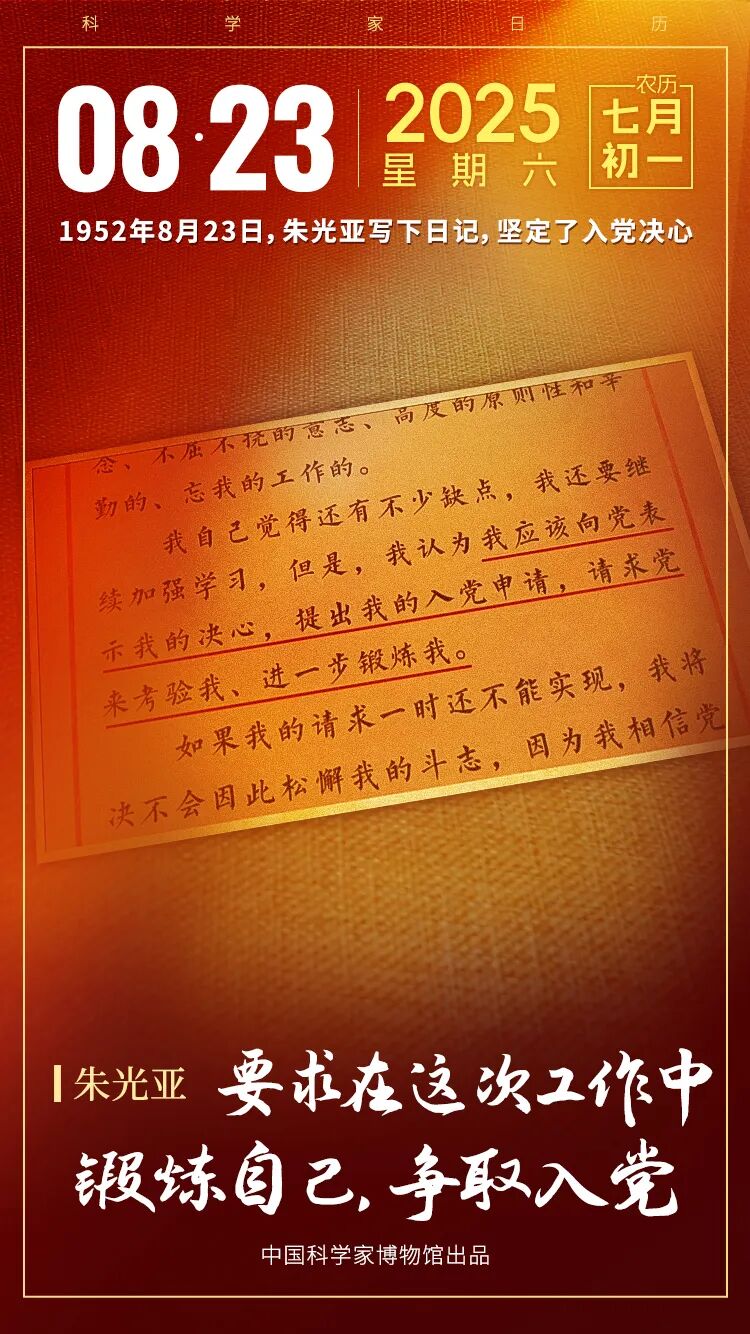 科学家日历
08·23
2025
星期六
农历
七月
初一
1952年8月23日，朱光亚写下日记，坚定了入党决心
念、不屈不挠的意志、高度的原则性和辛
勤的、忘我的工作的。
我自己觉得还有不少缺点，我还要继
续加强学习，但是，我认为我应该向党表
示我的决心，提出我的入党申请，请求党
来考验我、进一步锻炼我。
如果我的请求一时还不能实现，我将
决不会因此松懈我的斗志，因为我相信党
朱光亚 要求在这次工作中
锻炼自己，争取入党
中国科学家博物馆出品